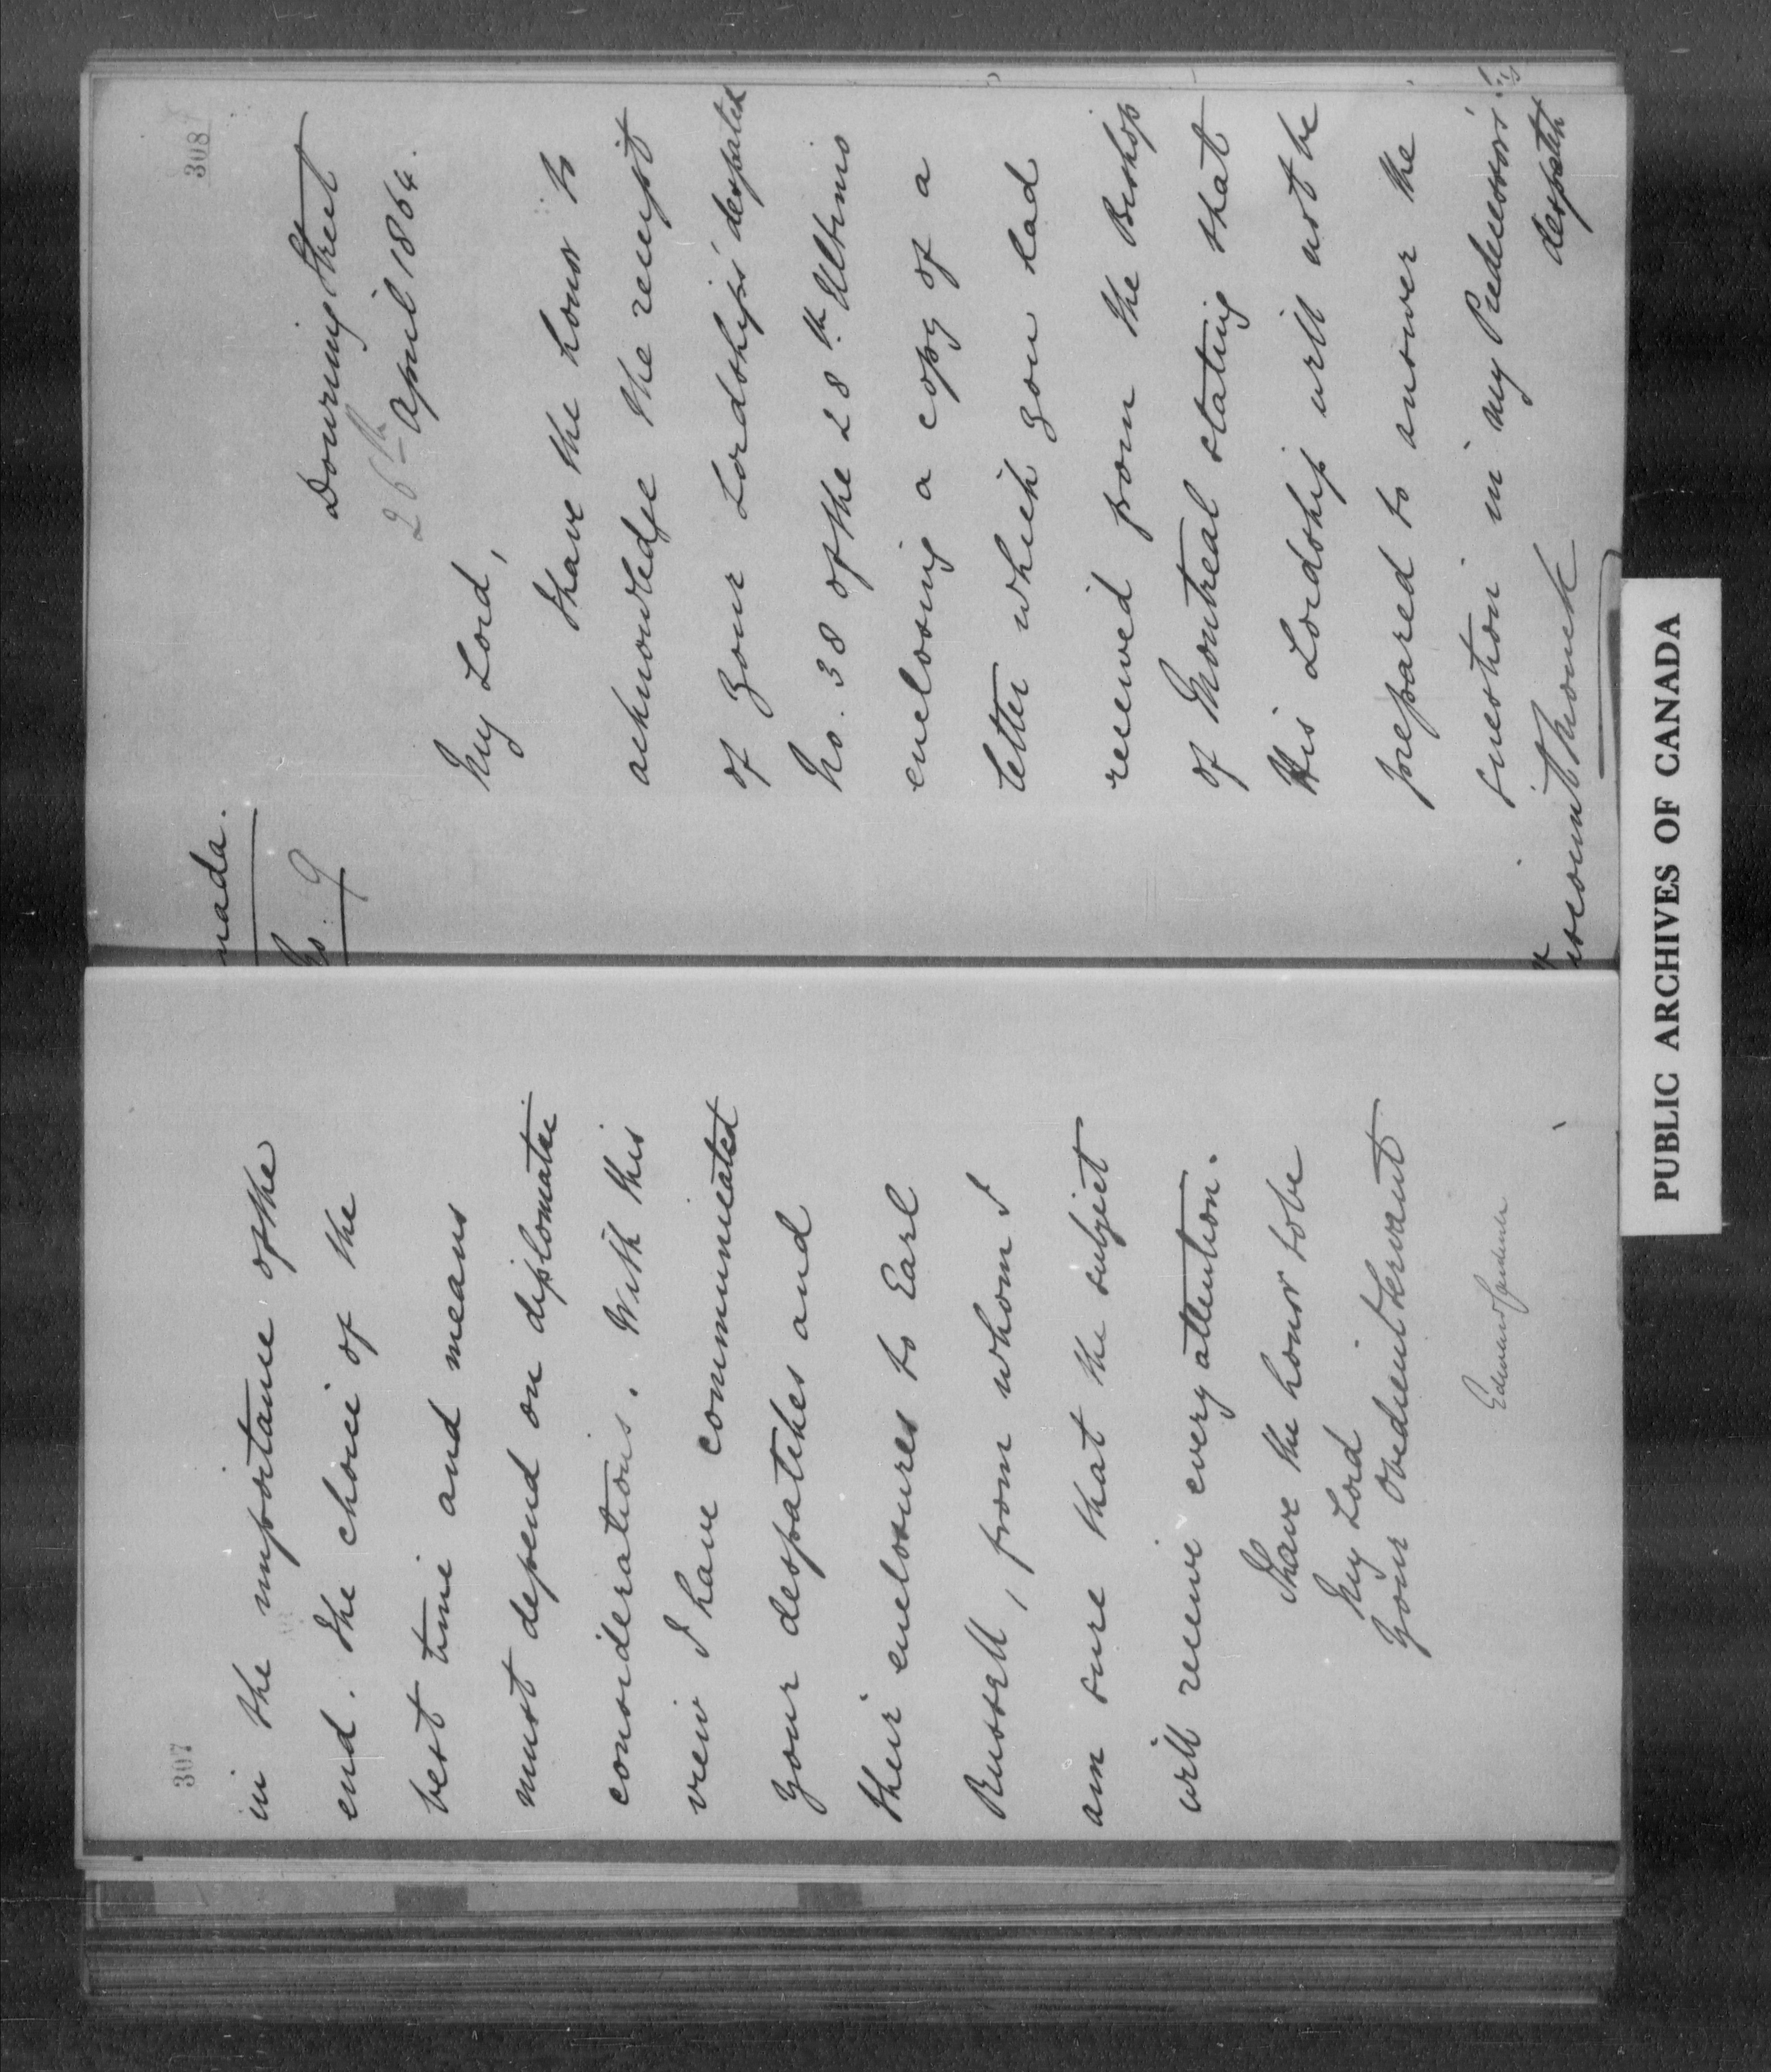 307
in the importance of the
end. The choice of the
best time and means
must depend on diplomatic
considerations. With this
view I have communicated
your despatches and
their enclosures to Earl
Russell, from whom I
am sure that the subject
will receive every attention.
I have the honor to be
My Lord
Your Obedient Servant
Edward Cardwell
308
nada.
No. 9
Downing Street
26th April 1864.
My Lord,
I have the honor to
acknowledge the receipt
of Your Lordship's despatch
No. 38 of the 28th Ultimo
enclosing a copy of a
letter which you had
received from the Bishop
of Montreal stating that
His Lordship will not be
prepared to answer the
question in my Predecessor's
despatch
iscount Monck
PUBLIC ARCHIVES OF CANADA